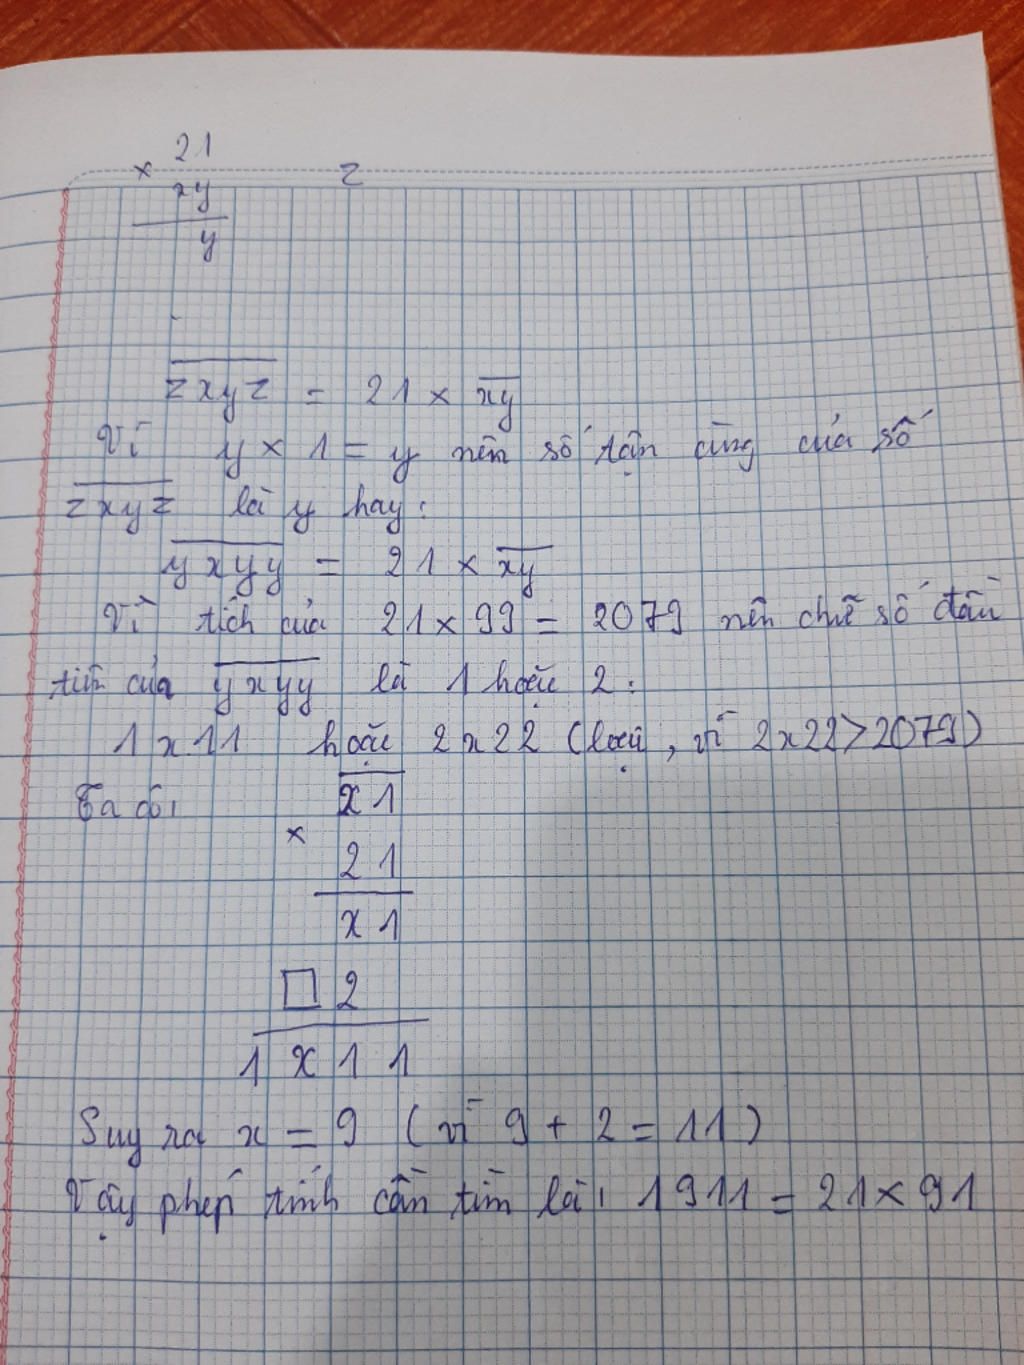 21
× xy
z
y
zxyz = 21 × xy
Vì y × 1 = y nên số tận cùng của số
zxyz là y hay:
yxyy = 21 × xy
Vì tích của 21 × 99 = 2079 nên chữ số đầu
tiên của yxyy là 1 hoặc 2:
1x11 hoặc 2x22 (loại, vì 2x22>2079)
Ta có:
x1
×
21
x1
□2
1x11
Suy ra x = 9 (vì 9 + 2 = 11)
Vậy phép tính cần tìm là: 1911 = 21×91